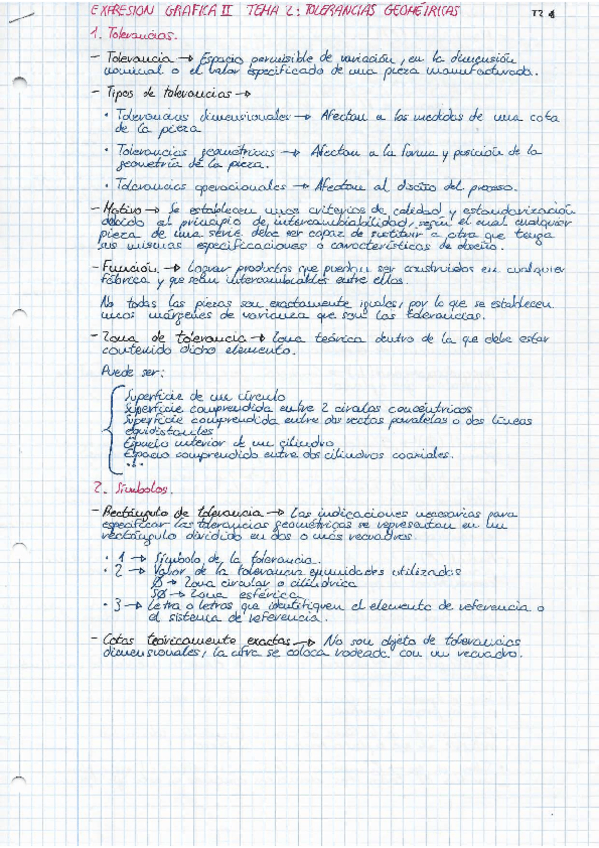 EXPRESION GRAFICA II TEMA 2: TOLERANCIAS GEOMÉTRICAS
1. Tolerancias.
- Tolerancia → Espacio permisible de variación, en la dimensión
nominal o el valor especificado de una pieza manufacturada.
- Tipos de tolerancias →
• Tolerancias dimensionales → Afectan a las medidas de una cota
de la pieza
• Tolerancias geométricas → Afectan a la forma y posición de la
geometría de la pieza.
• Tolerancias operacionales → Afectan al diseño del proceso.
- Motivo → Se establecen unos criterios de calidad y estandarización
debido al principio de intercambiabilidad, según el cual cualquier
pieza de una serie debe ser capaz de sustituir a otra que tenga
las mismas especificaciones o características de diseño.
- Función → Lograr productos que puedan ser construidos en cualquier
fábrica y que sean intercambiables entre ellos.
No todas las piezas son exactamente iguales, por lo que se establecen
unos márgenes de varianza que son las tolerancias.
- Zona de tolerancia → Zona teórica dentro de la que debe estar
contenido dicho elemento.
Puede ser:
Superficie de un círculo
Superficie comprendida entre 2 círculos concéntricos
Superficie comprendida entre dos rectas paralelas o dos líneas
equidistantes
Espacio interior de un cilindro
Espacio comprendido entre dos cilindros coaxiales.
...
2. Símbolos.
- Rectángulo de tolerancia → Las indicaciones necesarias para
especificar las tolerancias geométricas se representan en un
rectángulo dividido en dos o más recuadros
• 1 → Símbolo de la tolerancia.
• 2 → Valor de la tolerancia en unidades utilizadas
Ø → Zona circular o cilíndrica
SØ → Zona esférica
• 3 → Letra o letras que identifiquen el elemento de referencia o
el sistema de referencia.
- Cotas teóricamente exactas → No son objeto de tolerancias
dimensionales, la cifra se coloca rodeada con un recuadro.